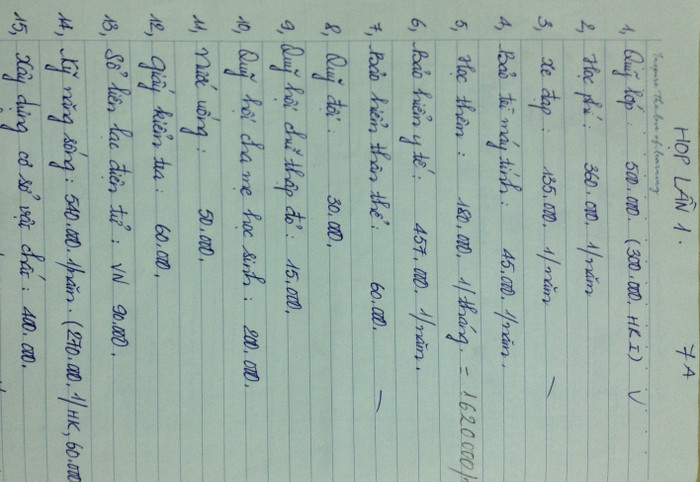 HỌP LẦN 1. 7A
1, Quỹ lớp: 500.000. (300.000. HKI) V
2, Học phí: 360.000. 1/năm
3, Xe đạp: 135.000. 1/năm —
4, Bảo trì máy tính: 45.000. 1/năm.
5, Học thêm: 180.000. 1/tháng. = 1620000/
6, Bảo hiểm y tế: 457.000. 1/năm.
7, Bảo hiểm thân thể: 60.000. —
8, Quỹ đội: 30.000.
9, Quỹ hội chữ thập đỏ: 15.000.
10, Quỹ hội cha mẹ học sinh: 200.000.
11, Nước uống: 50.000.
12, Giấy kiểm tra: 60.000.
13, Sổ liên lạc điện tử: VN 90.000.
14, Kỹ năng sống: 540.000. 1/năm. (270.000. 1/HK, 60.000
15, Xây dựng cơ sở vật chất: 400.000.